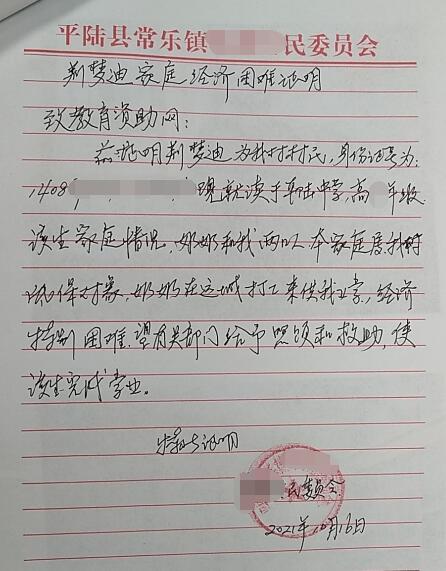 平陆县常乐镇 民委员会
荆梦迪家庭经济困难证明
致教育资助网:
兹证明荆梦迪,为我村村民,身份证号为:
1408 现就读于平陆中学,高 年级
该生家庭情况,奶奶和我两口人,本家庭属我村
低保对象,奶奶在运城打工来供我上学,经济
特别困难,望有关部门给予照顾和救助,使
该生完成学业。
特此证明
民委员会
2021年10月16日